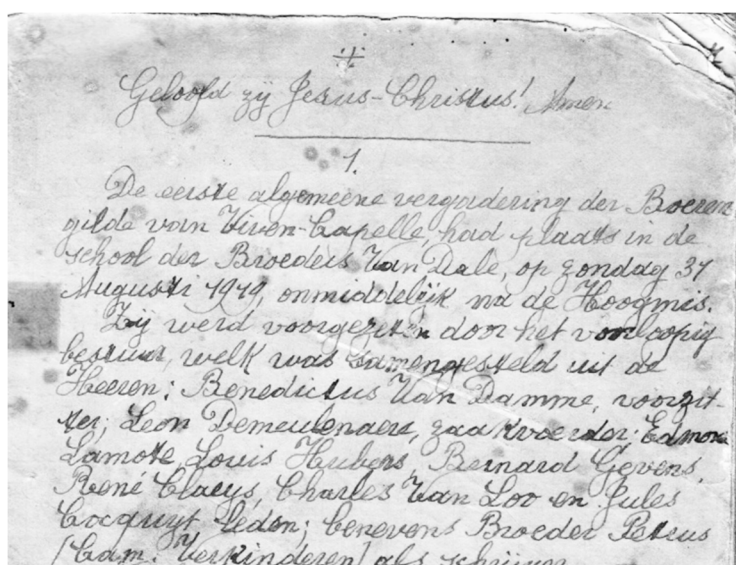 Geloofd zij Jesus-Christus! Amen
1.
De eerste algemeene vergadering der Boeren
gilde van Viven-Capelle, had plaats in de
school der Broeders Van Dale, op zondag 31
Augusti 1919, onmiddelijk na de Hoogmis.
Zij werd voorgezeten door het voorloopig
bestuur, welk was samengesteld uit de
Heeren: Benedictus Van Damme, voorzit-
ter; Leon Demeulenaere, zaakvoerder; Edmond
Lamote, Louis Hubers, Bernard Gevens,
René Claeys, Charles Van Loo en Jules
Cocquyt leden; benevens Broeder Petrus
(Cam. Verkinderen) als schrijver